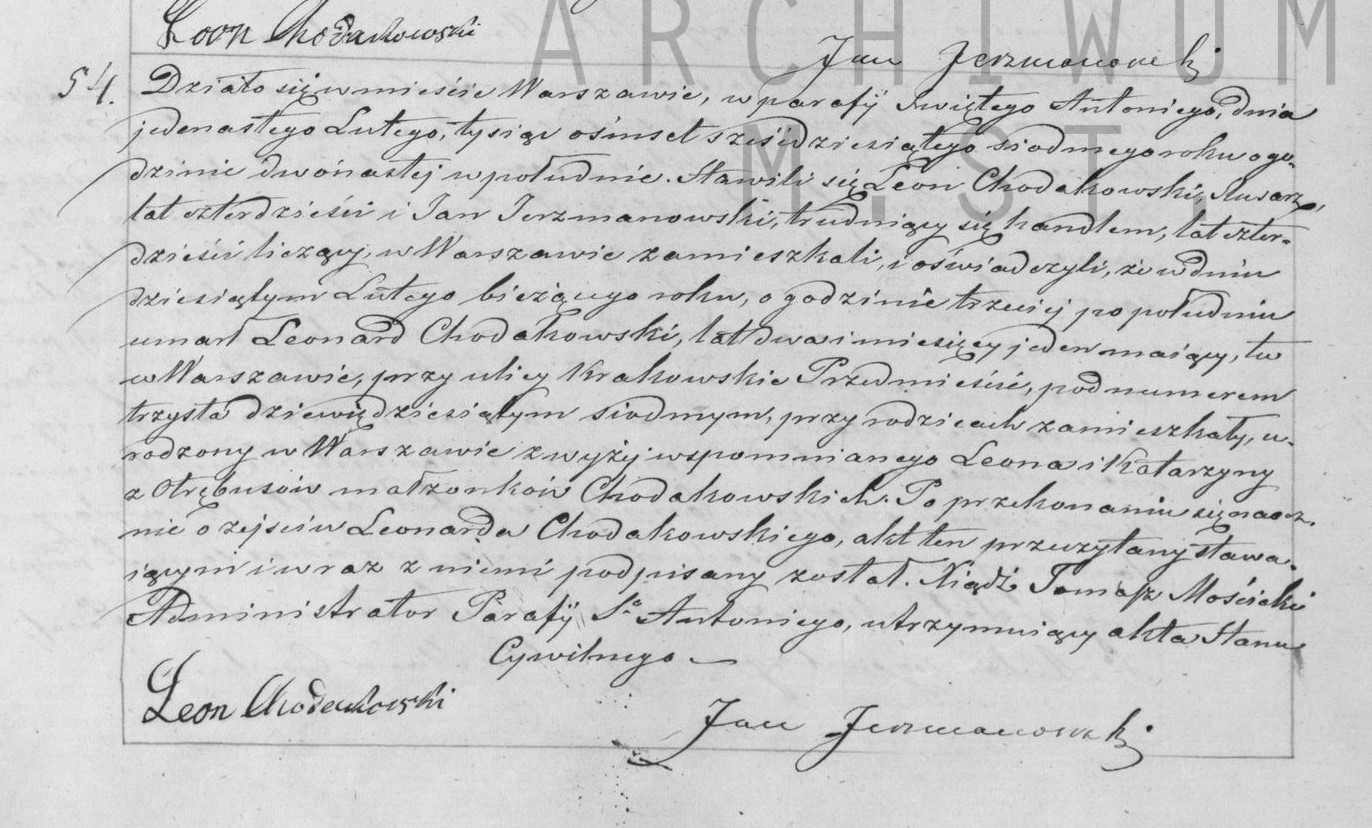 Leon Chodakowski
Jan Jerzmanowski
ARCHIWUM
M. ST.
54. Działo się w mieście Warszawie, w parafij Świętego Antoniego, dnia
jedenastego Lutego, tysiąc ośmset sześćdziesiątego siodmego roku o go-
dzinie dwónastej w południe. Stawili się Leon Chodakowski, Ślusarz,
lat czterdzieści i Jan Jerzmanowski, trudniący się handlem, lat czter-
dzieści liczący, w Warszawie zamieszkali, i oświadczyli, że w dniu
dziesiątym Lutego bieżącego roku, o godzinie trzeciej po południu
umarł Leonard Chodakowski, lat dwa i miesięcy jeden maiący, tu
w Warszawie, przy ulicy Krakowskie Przedmieście, pod numerem
trzysta dziewiędziesiątym siodmym, przy rodzicach zamieszkały, u-
rodzony w Warszawie z wyżej wspomnianego Leona i Katarzyny
z Otrębusów małżonków Chodakowskich. Po przekonaniu się naocz-
nie o zejściu Leonarda Chodakowskiego, akt ten przeczytany stawa-
iącym i wraz z niemi podpisany został. Xiądz Tomasz Mościcki
Administrator Parafij Sgo Antoniego, utrzymuiący akta Stanu
Cywilnego —
Leon Chodakowski
Jan Jerzmanowski